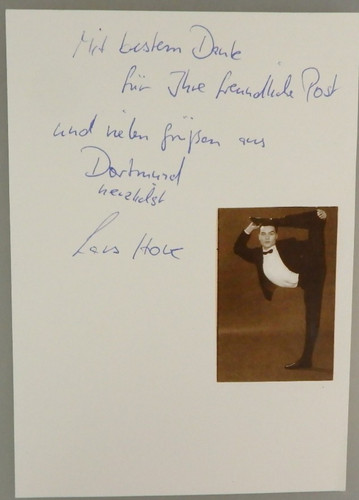 Mit bestem Dank
für Ihre freundliche Post
und vielen Grüßen aus
Dortmund
herzlichst